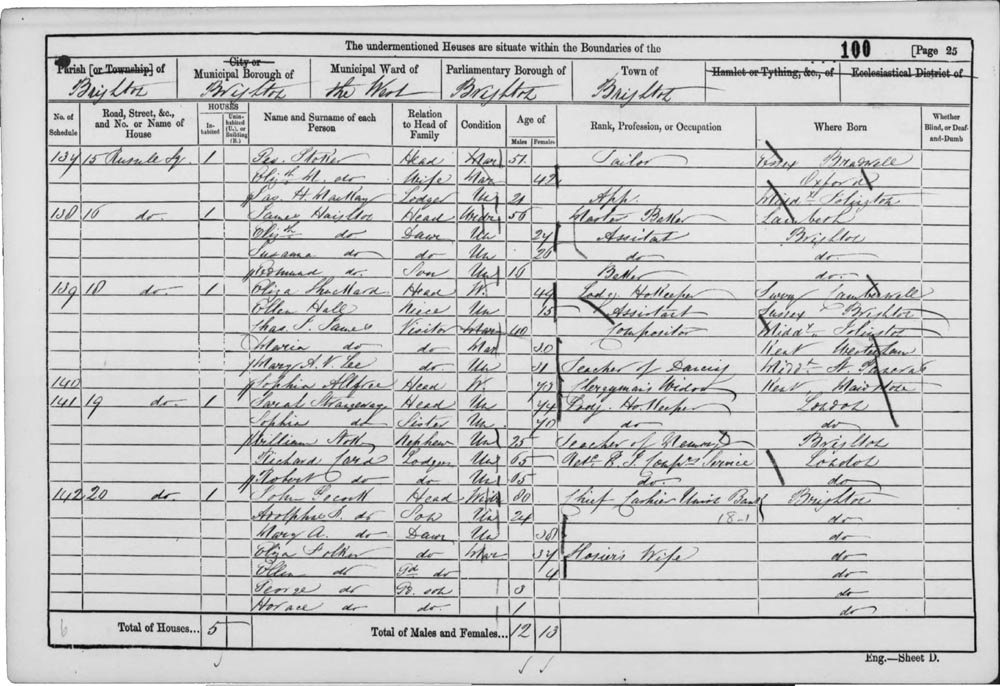 The undermentioned Houses are situate within the Boundaries of the 100 [Page 25
Parish [or Township] of City or Municipal Borough of Municipal Ward of Parliamentary Borough of Town of Hamlet or Tything, &c., of Ecclesiastical District of
Brighton Brighton the West Brighton Brighton
No. of Schedule Road, Street, &c., and No. or Name of House HOUSES Inhabited Uninhabited (U.), or Building (B.) Name and Surname of each Person Relation to Head of Family Condition Age of Males Females Rank, Profession, or Occupation Where Born Whether Blind, or Deaf-and-Dumb
137 15 Sq. 1 Stoker Head Mar 51 Tailor Essex
Elizth M. do Wife Mar 42 Oxford
Jas. H. Mackay Lodger Un 21 App. Middx Islington
138 16 do. 1 James Head Widr 56 Master Baker Lambeth
Elizth do Daur Un 24 Assistant Brighton
Susanna do do Un 20 do do
Edmund do. Son Un 16 Baker do.
139 18 do. 1 Eliza Head W. 49 Lodg. Ho. Keeper Camberwell
Ellen Hall Niece Un 15 Assistant Sussex Brighton
Chas. S. James Visitor Mar 40 Compositor Middx Islington
Maria do do Mar 30 Kent Westerham
Mary A. V. Lee do Un 31 Teacher of Dancing Middx St. Pancras
140 Sophia Allfree Head W. 73 Clergyman's Widow Kent Maidstone
141 19 do. 1 Sarah Strangeway Head Un 74 Lodg. Ho. Keeper London
Sophia do Sister Un 70 do do
William Nephew Un 25 Teacher of Brighton
Richard Card Lodger Un 65 Service London
Robert do do Un 65 do. do
142 20 do 1 John Head Widr 80 Chief Cashier Union Bank Brighton
Adolphus do Son Un 24 18-1 do
Mary A. do Daur Un 38 do
Eliza Folker do Mar 34 Hosier's Wife do
Ellen do Gd do 4 do
George do Gd. son 3 do
Horace do do. 1 do
6 Total of Houses... 5 Total of Males and Females... 12 13
Eng.—Sheet D.